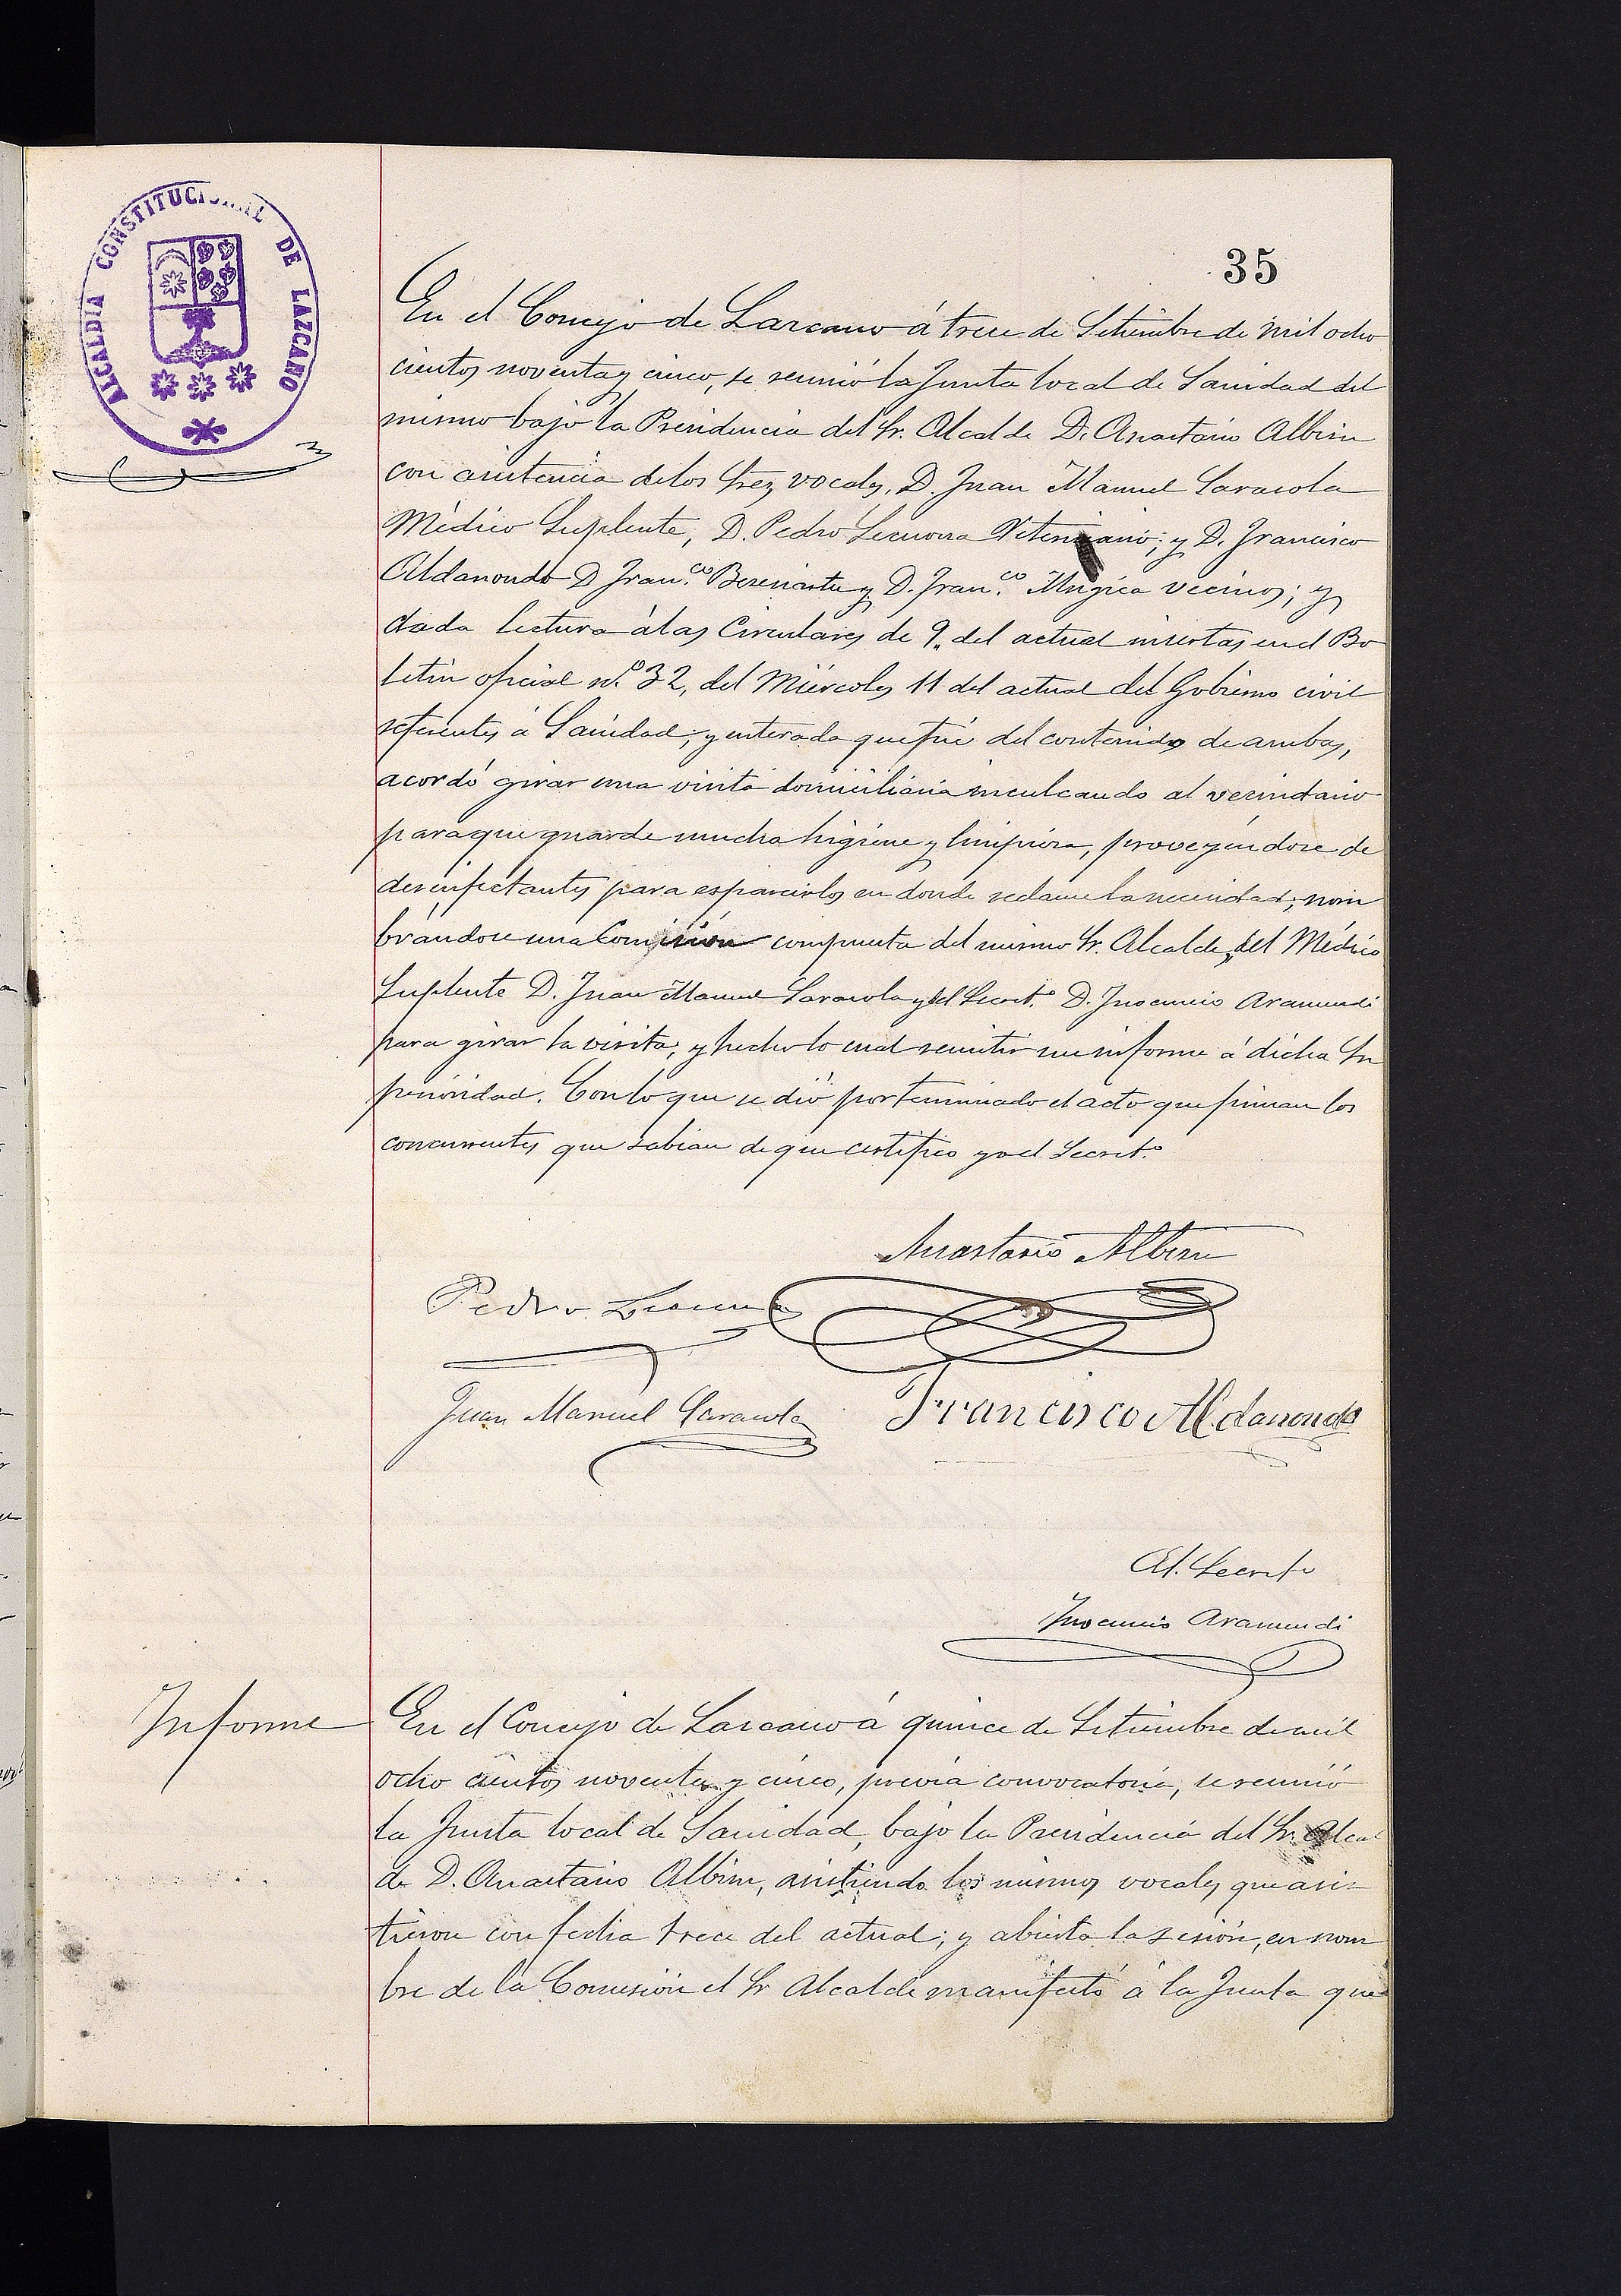 ALCALDIA CONSTITUCIONAL DE LAZCANO
35
En el Concejo de Lazcano á trece de Setiembre de mil ocho
cientos noventa y cinco, se reunió la Junta local de Sanidad del
mismo bajo la Presidencia del Sr. Alcalde D. Anastasio Albisu
con asistencia de los Srez vocales, D. Juan Manuel Sarasola
Médico Suplente, D. Pedro Lecuona Vetenario; y D. Francisco
Aldanondo D Fran.co y D. Fran.co Mugica vecinos; y
dada lectura á las Circulares de 9. del actual insertas en el Bo
letin oficial n.º 32, del Miércoles 11 del actual del Gobierno civil
referentes á Sanidad; y enterada que fué del contenido de ambas,
acordó girar una visita domiciliaria inculcando al vecindario
para que guarde mucha higiene y limpieza, proveyéndose de
desinfectantes para esparcirlos en donde reclame la necesidad; nom
brándose una Comisión compuesta del mismo Sr. Alcalde, del Médico
Suplente D. Juan Manuel Sarasola y del Secret.º D. Inocencio Aramendi
para girar la visita; y hecho lo cual remitir un informe á dicha Su
perioridad. Con lo que se dió por terminado el acto que firman los
concurrentes que sabian de que certifico yo el Secret.º
Anastasio Albisu
Pedro Lecuona
Juan Manuel Sarasola Francisco Aldanondo
El Secret.º
Inocencio Aramendi
Informe
En el Concejo de Lazcano á quince de Setiembre de mil
ocho cientos noventa y cinco, prévia convocatoria, se reunió
la Junta local de Sanidad, bajo la Presidencia del Sr. Alcal
de D. Anastasio Albisu, asistiendo los mismos vocales que asis
tieron con fecha trece del actual; y abierta la sesión, en nom
bre de la Comisión el Sr Alcalde manifestó á la Junta que